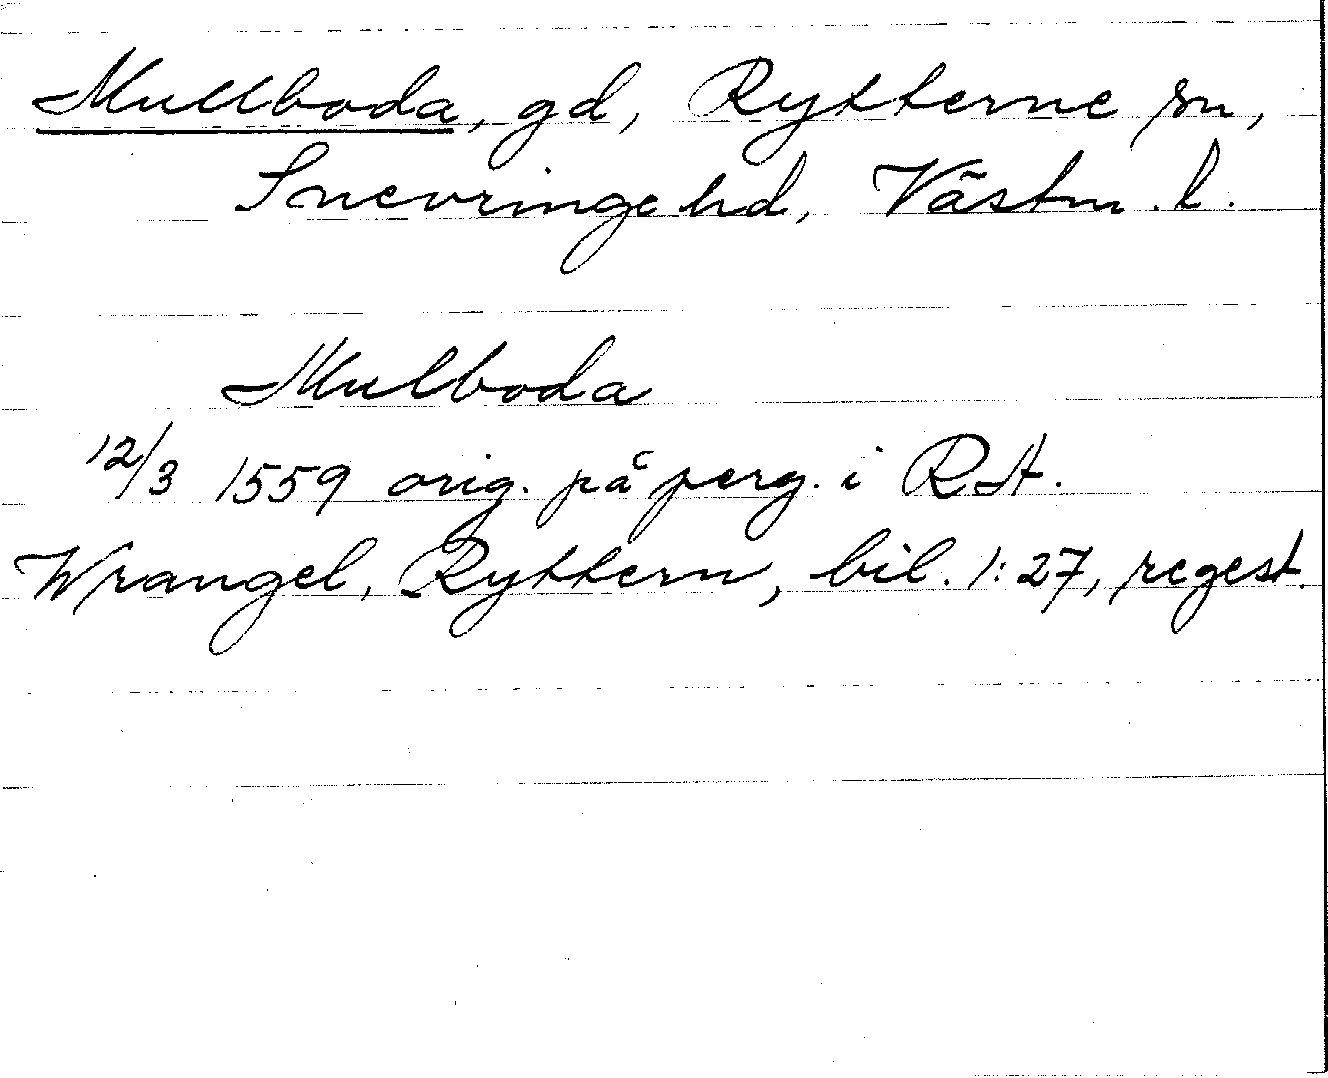 Mullboda, gd, Rytterne sn,
Snevringe hd, Västm. l.
Mulboda
12/3 1559 orig. på perg. i RA.
Wrangel, Ryttern, bil. 1:27, regest.